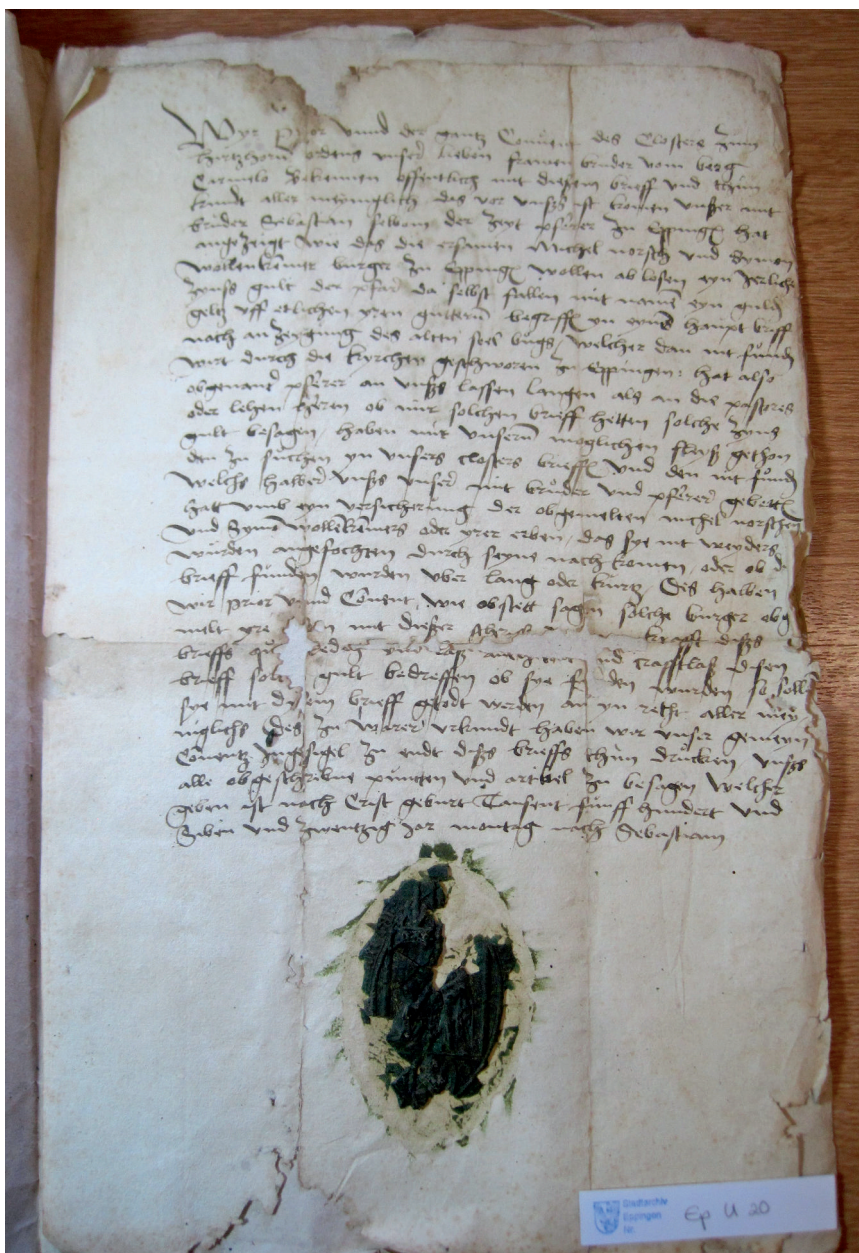 Wyr Prior vnnd der gantz Convent des Closters zum
hirtzhorn ordens vnser lieben frawen bruder vom berg
Carmelo Bekennen offentlich mit diesem brieff vnd thun
kundt aller menniglich das vor vnßs ist komen vnßer mit
bruder Sebastian der zeyt pfarer zu Epping hat
angezeigt wie das die ersamen Michel norsch vnd Symon
wollenkremer burger zu Epping wollen ab losen eyn Jerliche
zynss gult der pfar da selbst fallen mit name eyn guld
geltz vff etlichen yren guttern begriff yn eyne haupt brieff
nach anzeygung des alten seel buchs, welcher dan nit fund
wirt durch die kyrchen geschworen zu Eppingen: hat also
obgenant pfarer an vnßs lassen langen als an die pastores
oder lehen hern ob mir solchen brieff hetten solche zyns
gult besagen, haben mir vnsern moglichen flayß gethon
den zu suchen yn vnsers closters brieff vnd den nit fund
welchs halber vnßs vnser mit bruder vnd pfarer gebett
hatt vmb eyn versicherung der obgemelten michel norschen
vnd Symon wollekremers oder yrer erben, das sye nit weyders
wurden angefochten durch seyne nach komen, oder ob d
brieff funden wurden vber lang oder kurtz, Des halben
wir prior vnnd Convent, wie obstett sagen solche burger obg
melt mit dießer krafft dißs
brieffs vnd crafftlaß disen
brieff gult bedreffen ob sye wurden so soll
sye mit brieff gedodt werden an yn recht aller mey
niglichs Des zu warer vrkundt haben wir vnser gemeyn
Conuentz Ingesigel zu endt dißs brieffs thun drucken vnßs
alle obgeschribne puncten vnd artickel zu besagen Welcher
geben ist nach Crist geburt Tausent funff hundert vnd
Siben vnd zwentzig Jar montag nach Sebastiani
Stadtarchiv
Eppingen
Nr.
Ep U 20